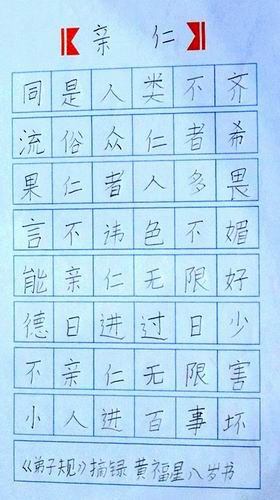 【亲仁】
同是人类不齐
流俗众仁者希
果仁者人多畏
言不讳色不媚
能亲仁无限好
德日进过日少
不亲仁无限害
小人进百事坏
《弟子规》摘录 黄福星八岁书